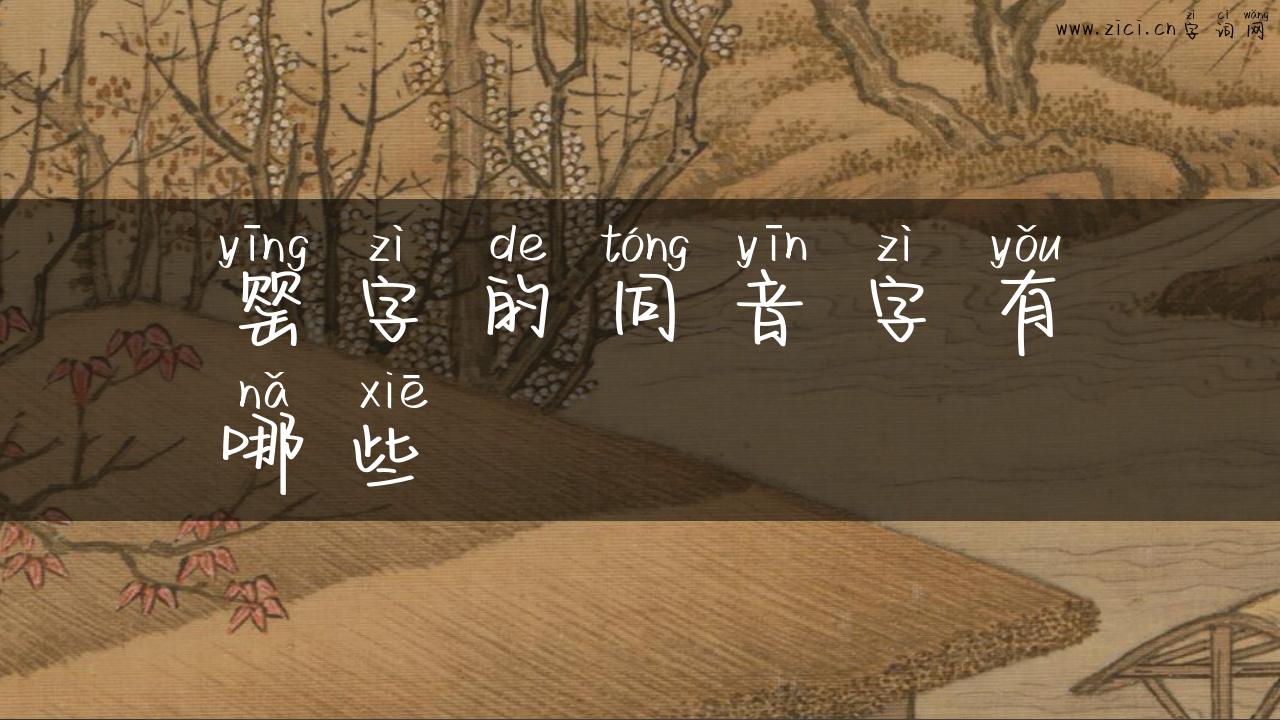 zì cí wǎng
www.zici.cn字词网
yīng zì de tóng yīn zì yǒu
罂字的同音字有
nǎ xiē
哪些